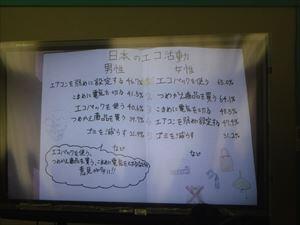 日本のエコ活動
男性 女性
エアコンを弱めに設定する 46.7% エコバックを使う 65.0%
こまめに電気を切る 41.5% つめかえ商品を買う 64.1%
エコバックを使う 40.6% こまめに電気を切る 48.5%
つめかえ商品を買う 39.7% エアコンを弱めに設定する 47.9%
ゴミを減らす 31.9% ゴミを減らす
など など
エコバックを使う、
つめかえ商品を買う、こまめに電気を切るなどの
意見が